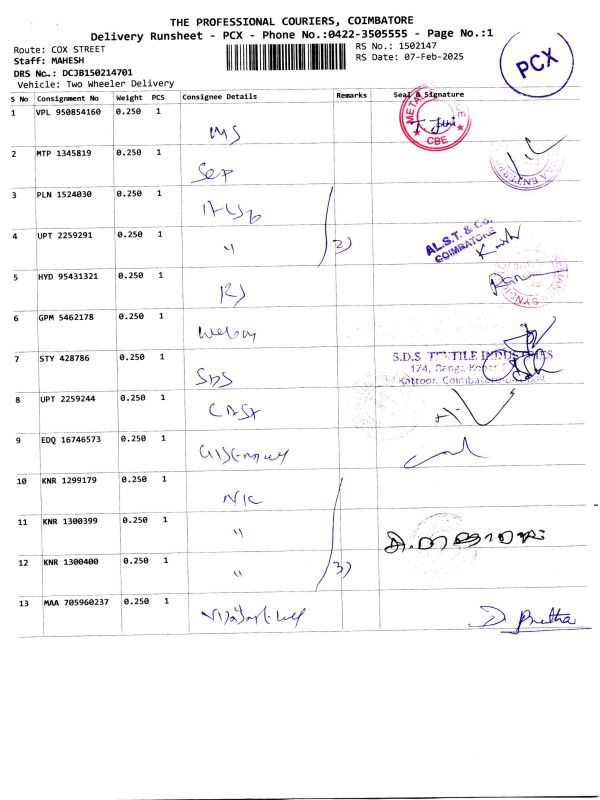 THE PROFESSIONAL COURIERS, COIMBATORE
Delivery Runsheet - PCX - Phone No.:0422-3505555 - Page No.:1
Route: COX STREET
RS No.: 1502147
Staff: MAHESH
RS Date: 07-Feb-2025
DRS No.: DCJB150214701
Vehicle: Two Wheeler Delivery
PCX
S No Consignment No Weight PCS Consignee Details Remarks Seal & Signature
1 VPL 950854160 0.250 1 MS
CBE
2 MTP 1345819 0.250 1
3 PLN 1524030 0.250 1
4 UPT 2259291 0.250 1 " 2)
AL.S.T. & CO.
COIMBATORE
5 HYD 95431321 0.250 1 RS
6 GPM 5462178 0.250 1
7 STY 428786 0.250 1 SDS
S.D.S TEXTILE INDUSTRIES
174,
Kattoor, Coimbatore
8 UPT 2259244 0.250 1
9 EDQ 16746573 0.250 1
10 KNR 1299179 0.250 1 NK
11 KNR 1300399 0.250 1 "
12 KNR 1300400 0.250 1 " 3)
13 MAA 705960237 0.250 1